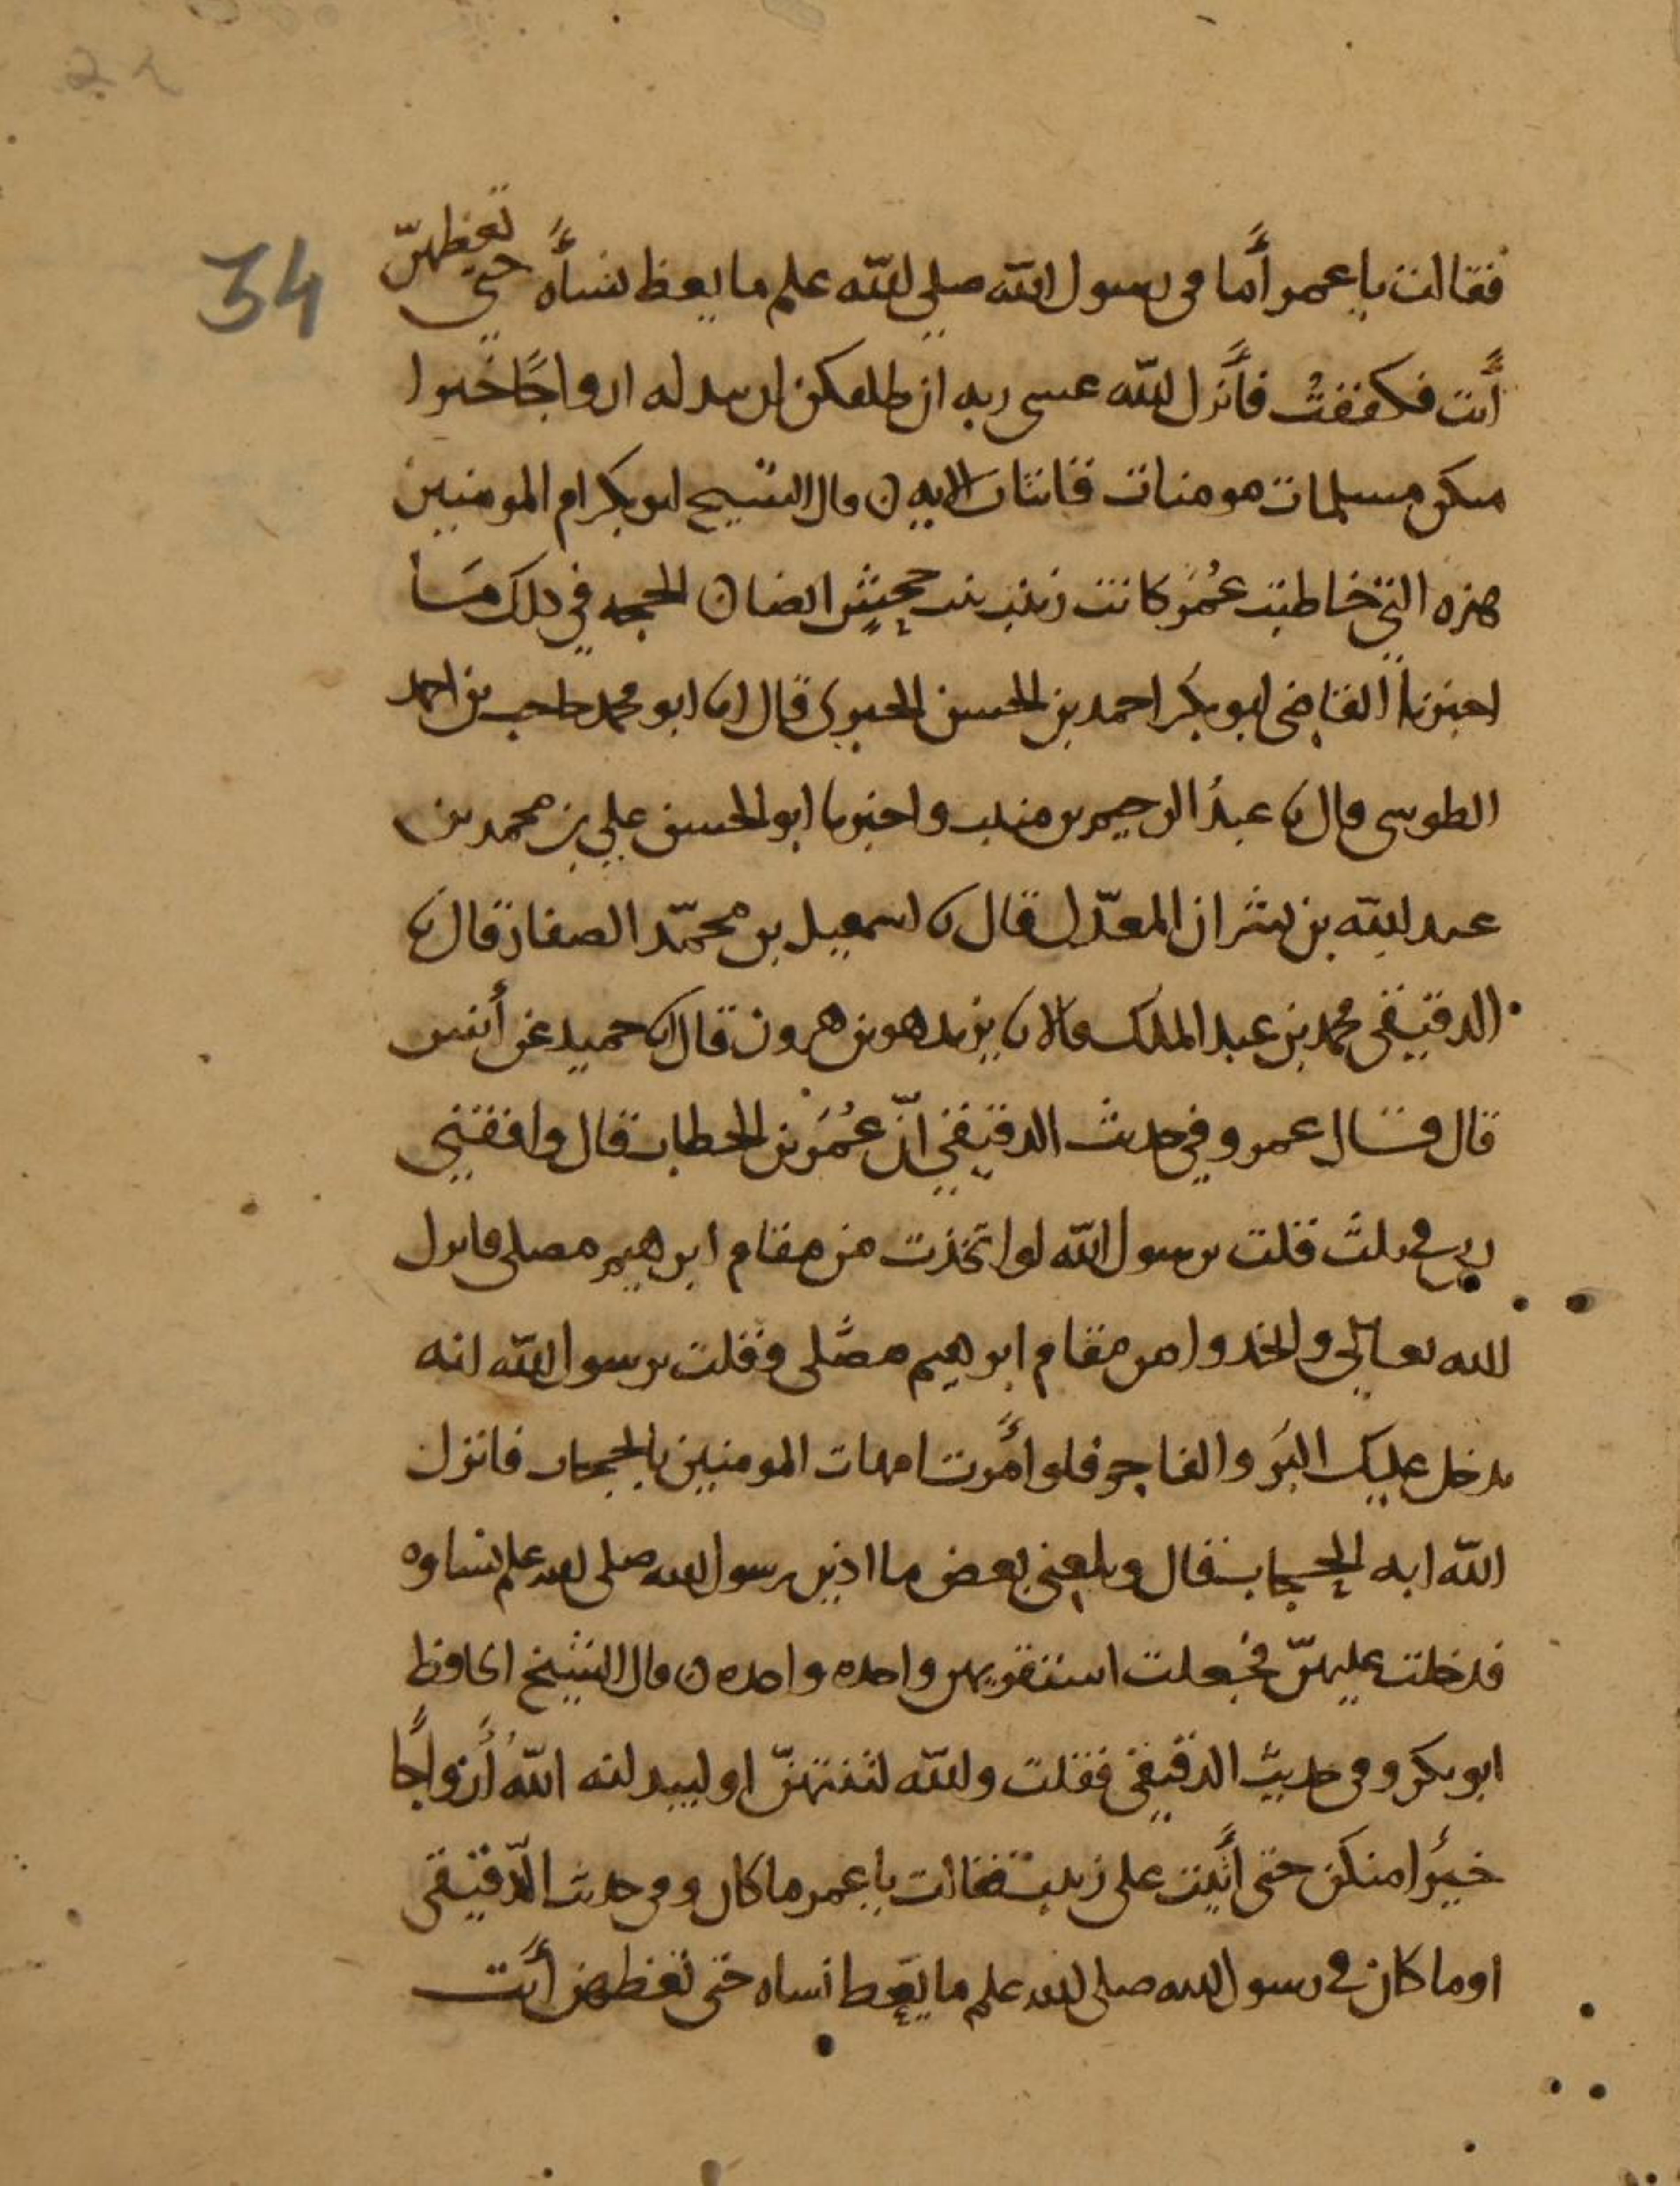 34
فقالت يا عمر أما في رسول الله صلى الله علم ما يعظ نسأه حتى تعظهن
أنت فكففت فأنزل الله عسى ربه ان طلقكن ان يبدله ازواجًا خيرا
منكن مسلمات مومنات قانتات الايه ن قال الشيخ ابو بكر ام المومنين
هذه التي خاطبت عُمَر كانت زينب بنت جحش ايضا ن الحجه في ذلك ما
اخبرنا القاضي ابو بكر احمد بن الحسن الحيري قال انا ابو محمد حاجب بن احمد
الطوسي قال نا عبدُ الرحيم بن منيب واخبرنا ابو الحسن علي بن محمد بن
عبد الله بن بشران المعدّل قال نا اسمعيل بن محمّد الصفار قال نا
الدقيقي محمد بن عبد الملك قالا نا يزيد هو بن هرون قال انا حميد عن أنس
قال قال عمر وفي حديث الدقيقي انّ عُمَر بن الخطاب قال وافقني
ربي في ثلث قلت يرسول الله لو اتخذت من مقام ابرهيم مصلى فانزل
الله تعالى واتخذوا من مقام ابرهيم مصَلى وقلت يرسول الله انه
يدخل عليك البَر والفاجر فلو أمَرت امهات المومنين بالحجاب فانزل
الله ايه الحجاب قال وبلغني بعض ما اذين رسول الله صلى الله علم نساوه
فدخلت عليهنّ فجعلت استقريهن واحده واحده ن قال الشيخ الحافظ
ابو بكر وفي حديث الدقيقي فقلت والله لتنتهنّ او ليبدلنه اللهُ أزواجًا
خيرًا منكن حتى أتَيت على زينب فقالت يا عمر ما كان وفي حديث الدّقيقي
اوما كان في رسول الله صلى الله علم ما يَعِظ نساه حتى تعظهن أنت